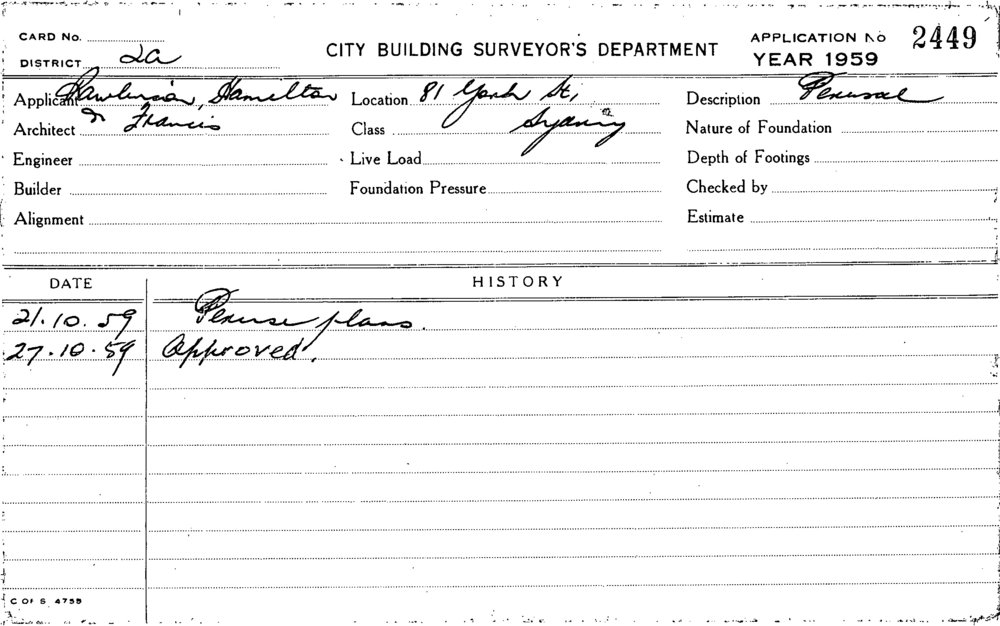 CARD No.
CITY BUILDING SURVEYOR'S DEPARTMENT
APPLICATION No 2449
DISTRICT 2a
YEAR 1959
Applicant Rawlinson, Hamilton
Location 81 York St,
Description Perusal
Architect & Francis
Class Sydney
Nature of Foundation
Engineer
Live Load
Depth of Footings
Builder
Foundation Pressure
Checked by
Alignment
Estimate
DATE HISTORY
21.10.59 Peruse plans.
27.10.59 Approved.
C OF S 4755